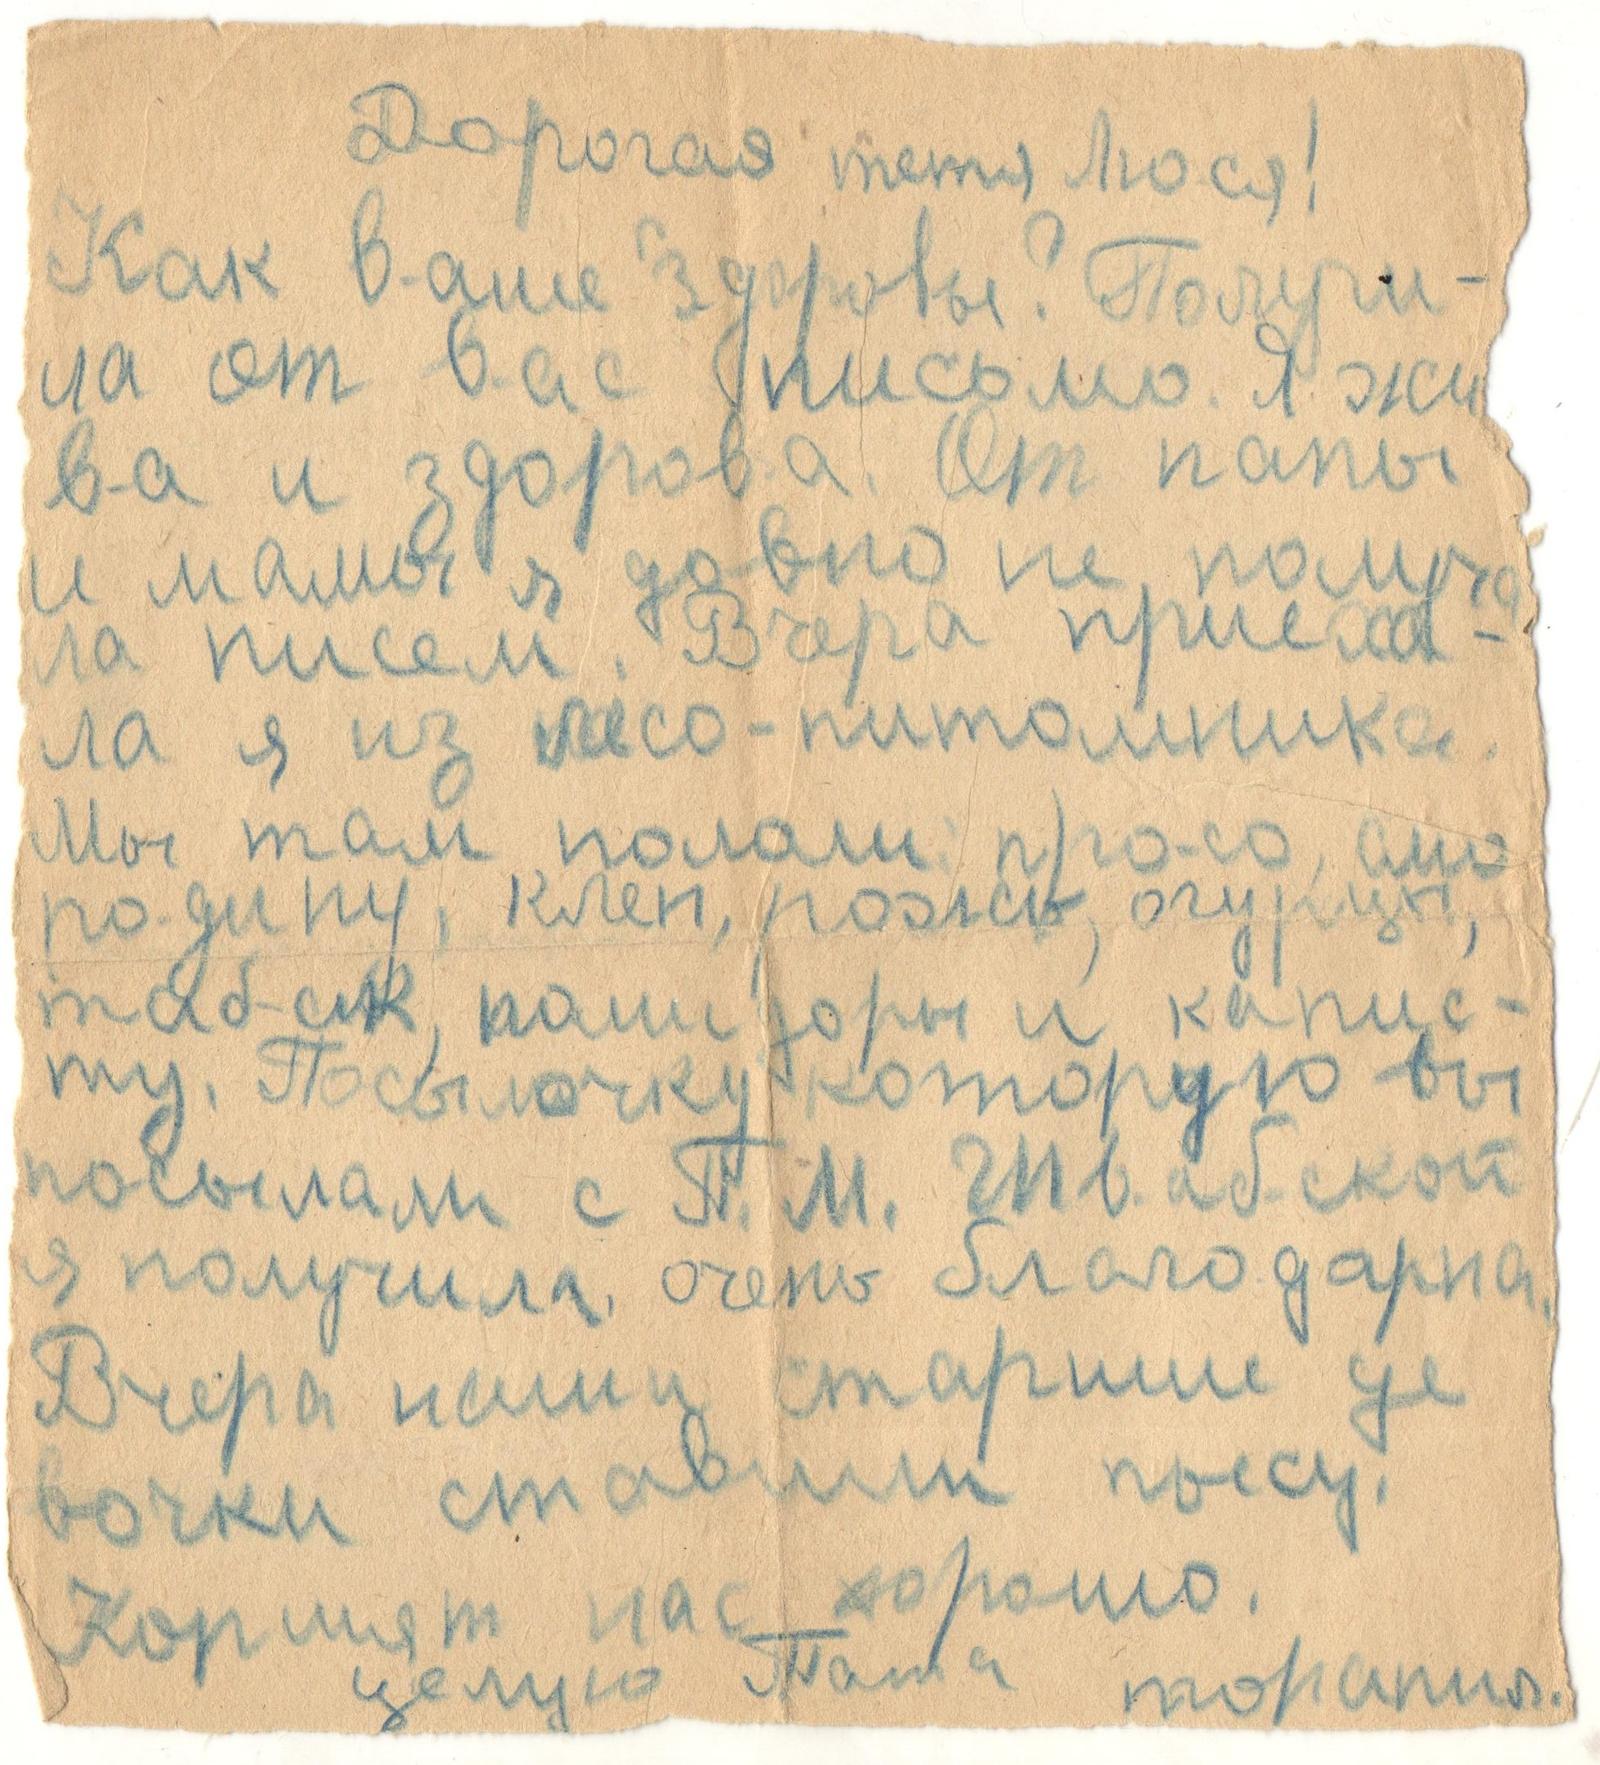 Дорогая тетя Люся!
Как ваше здоровье? Получи-
ла от вас письмо. Я жи
ва и здорова. От папы
и мамы я давно не получа
ла писем. Вчера приеха-
ла я из лесо-питомника.
Мы там пололи: просо, смо
родину, клен, рожь, огурцы,
табак, помидоры и капус-
ту. Посылочку которую вы
посылали с П. М. Швабской
я получила, очень благодарна.
Вчера наши старшие де
вочки ставили пьесу.
Кормят нас хорошо.
целую Тата